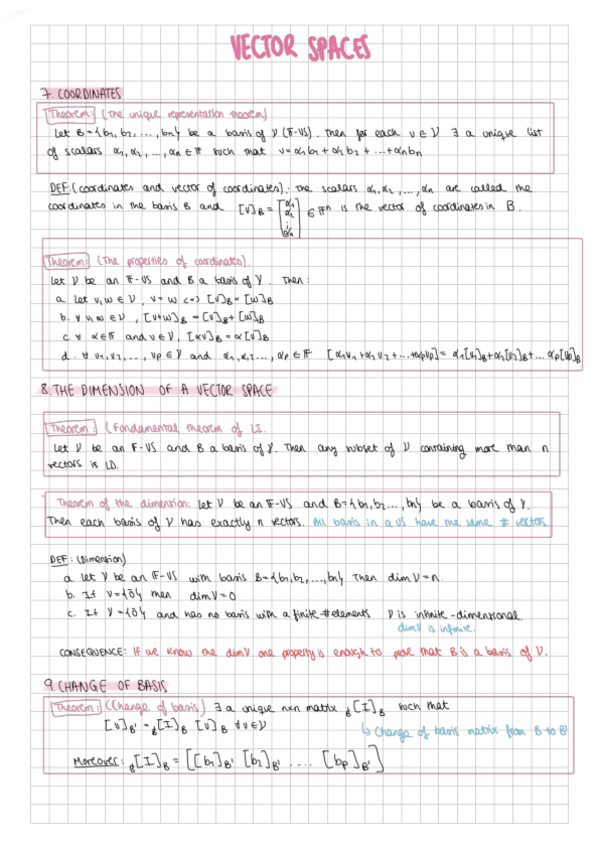 VECTOR SPACES
7. COORDINATES
Theorem: (The unique representation theorem)
Let B={b1, b2, ..., bn} be a basis of V (F-VS). Then for each v ∈ V ∃ a unique list
of scalars α1, α2, ..., αn ∈ F such that v = α1b1 + α2b2 + ... + αnbn
DEF: (coordinates and vector of coordinates).: The scalars α1, α2, ..., αn are called the
coordinates in the basis B and [v]B = [α1 α2 ⋮ αn] ∈ Fⁿ is the vector of coordinates in B.
Theorem: (The properties of coordinates).
Let V be an F-VS and B a basis of V. Then:
a. Let v, w ∈ V, v = w <=> [v]B = [w]B
b. ∀ v, w ∈ V, [v+w]B = [v]B + [w]B
c. ∀ α ∈ F and v ∈ V, [αv]B = α[v]B
d. ∀ v1, v2, ..., vp ∈ V and α1, α2, ..., αp ∈ F [α1v1 + α2v2 + ... + αpvp] = α1[v1]B + α2[v2]B + ... αp[vp]B
8. THE DIMENSION OF A VECTOR SPACE
Theorem: (Fundamental theorem of LI.
Let V be an F-VS and B a basis of V. Then any subset of V containing more than n
vectors is LD.
Theorem of the dimention: Let V be an F-VS and B={b1, b2..., bn} be a basis of V.
Then each basis of V has exactly n vectors. All basis in a VS have the same # vectors
DEF: (Dimension)
a. Let V be an F-VS with basis B={b1, b2, ..., bn} Then dim V = n.
b. If V={0} then dim V = 0
c. If V ={0} and has no basis with a finite #elements V is infinite-dimentional
dim V is infinite.
CONSEQUENCE: If we know the dim V one property is enough to prove that B is a basis of V.
9. CHANGE OF BASIS
Theorem: (Change of basis) ∃ a unique n×n matrix B[I]B such that
[v]B' = B[I]B [v]B ∀ v ∈ V
↳ Change of basis matrix from B to B'
Moreover: B[I]B = [[b1]B' [b2]B' .... [bp]B']